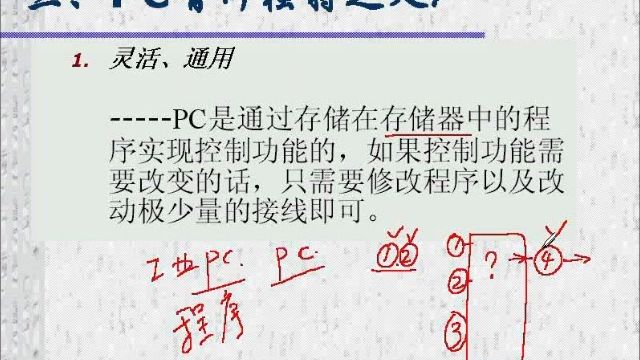 1. 灵活、通用
-----PC是通过存储在存储器中的程
序实现控制功能的，如果控制功能需
要改变的话，只需要修改程序以及改
动极少量的接线即可。
工业PC. PC. ①② ① ? ④
程序 ②
③